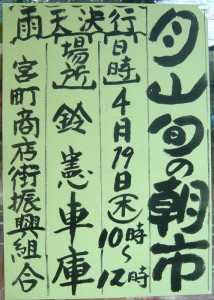 月山旬の朝市
[日時]4月19日(木)10時～12時
[場所]鈴憲車庫
雨天決行
宮町商店街振興組合